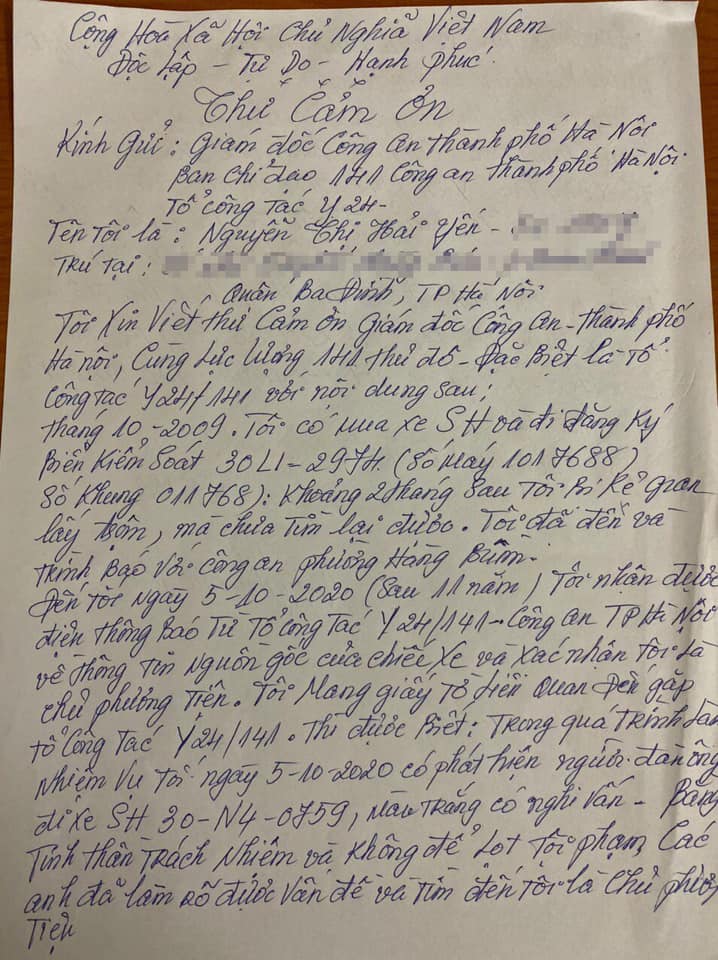 Cộng Hòa Xã Hội Chủ Nghĩa Việt Nam
Độc lập - Tự Do - Hạnh phúc
Thư Cảm Ơn
Kính Gửi : Giám đốc Công An thành phố Hà Nội
Ban chỉ đạo 141 Công an thành phố Hà Nội
Tổ công tác Y24-
Tên tôi là : Nguyễn Thị Hải Yến -
Trú tại :
Quận Ba Đình, TP Hà Nội
Tôi Xin Viết thư Cảm ơn Giám đốc Công An - thành phố
Hà nội, Cùng Lực Lượng 141 thủ đô - Đặc Biệt là Tổ
Công tác Y24/141 với nội dung sau ;
tháng 10 - 2009. Tôi có mua xe SH và đi đăng ký
Biển Kiểm Soát 30L1-2974. (Số máy 1017688)
Số Khung 011768) : Khoảng 2 tháng sau Tôi Bị Kẻ gian
lấy trộm, mà chưa Tìm lại được. Tôi đã đến và
trình Báo Với Công an phường Hàng Buồm.
Đến tối Ngày 5-10-2020 (Sau 11 năm) Tôi nhận được
điện thông Báo Từ Tổ Công Tác Y24/141 - Công an TP Hà Nội
về thông tin Nguồn gốc của chiếc Xe và Xác nhận Tôi Là
chủ phương tiện. Tôi Mang giấy tờ Liên Quan Đến gặp
tổ Công Tác Y24/141. Thì được Biết : Trong quá Trình Làm
Nhiệm Vụ Tối ngày 5-10-2020 có phát hiện người đàn ông
đi xe SH 30-N4-0759, màu trắng có nghi Vấn - Bằng
Tinh thần Trách Nhiệm và Không để Lọt Tội phạm, Các
anh đã làm rõ được Vấn đề và Tìm đến Tôi là Chủ phương
Tiện